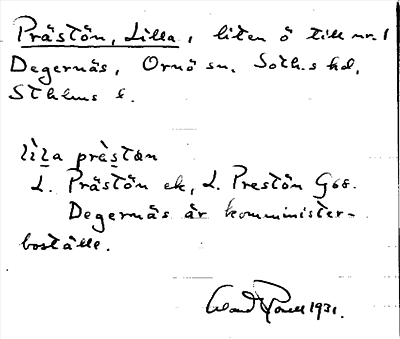 Prästön, Lilla, liten ö till nr. 1
Degernäs, Ornö sn. Soth.s hd,
Sthlms l.
lìl̲a präs̲tøn
L. Prästön ek, L. Prestön G68.
Degernäs är komminister-
boställe.
1931.